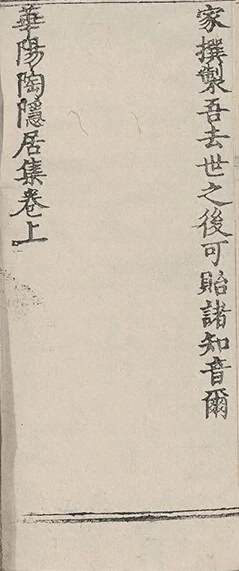 家撰製吾去世之後可貽諸知音爾
華陽陶隱居集卷上